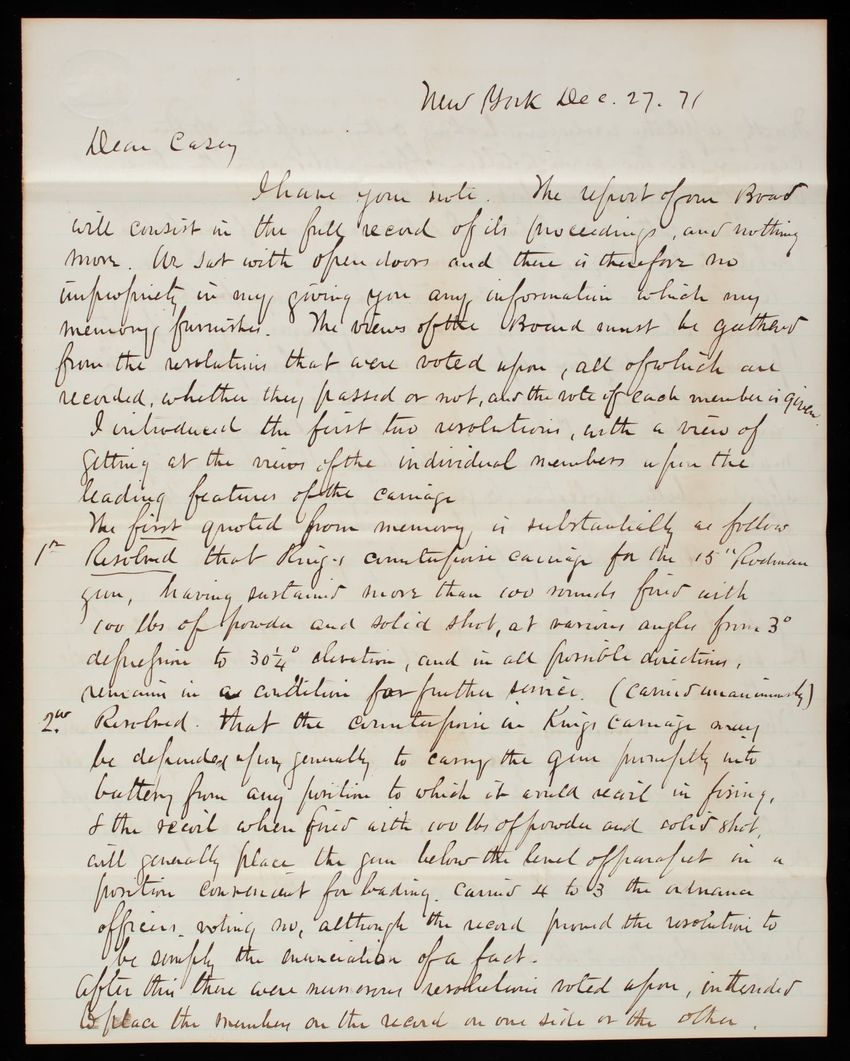 New York Dec. 27. 71
Dear Casey
I have your note. The report of our Board
will consist in the full record of its proceedings, and nothing
more. We sat with open doors and there is therefore no
impropriety in my giving you any information which my
memory furnishes. The views of the Board must be gathered
from the resolutions that were voted upon, all of which are
recorded, whether they passed or not, and the vote of each member is given.
I introduced the first two resolutions, with a view of
getting at the views of the individual members upon the
leading features of the carriage
The first quoted from memory is substantially as follow
1st Resolved that King's counterpoise carriage for the 15" Rodman
gun, having sustained more than 100 rounds fired with
100 lbs of powder and solid shot, at various angles from 3°
depression to 30¼° elevation, and in all possible directions,
remain in a condition for further service. (Carried unanimously)
2nd. Resolved. that the counterpoise in King's carriage may
be depended upon generally to carry the gun promptly into
battery from any position to which it would recoil in firing,
& the recoil when fired with 100 lbs of powder and solid shot,
will generally place the gun below the level of parapet in a
position convenient for loading. Carried 4 to 3 the ordnance
officers voting no, although the record proved the resolution to
be simply the enunciation of a fact.
After this there were numerous resolutions voted upon, intended
to place the members on the record on one side or the other.